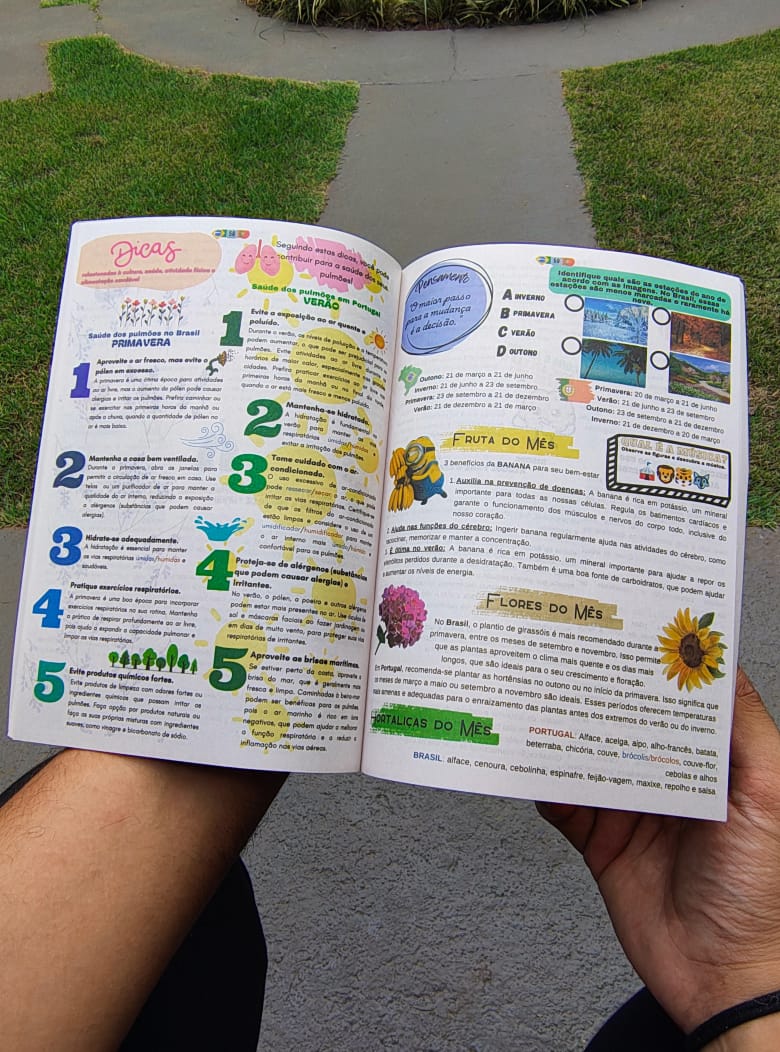 58
Dicas
relacionadas à cultura, saúde, atividade física e
alimentação saudável
Saúde dos pulmões no Brasil
PRIMAVERA
1
Aproveite o ar fresco, mas evite o
pólen em excesso.
A primavera é uma ótima época para atividades
ao ar livre, mas o aumento do pólen pode causar
alergias e irritar os pulmões. Prefira caminhar ou
se exercitar nas primeiras horas da manhã ou
após a chuva, quando a quantidade de pólen no
ar é mais baixa.
2
Mantenha a casa bem ventilada.
Durante a primavera, abra as janelas para
permitir a circulação de ar fresco em casa. Use
telas ou um purificador de ar para manter a
qualidade do ar interno, reduzindo a exposição
a alérgenos (substâncias que podem causar
alergias).
3
Hidrate-se adequadamente.
A hidratação é essencial para manter
as vias respiratórias úmidas/húmidas e
saudáveis.
4
Pratique exercícios respiratórios.
A primavera é uma boa época para incorporar
exercícios respiratórios em sua rotina. Mantenha
a prática de respirar profundamente ao ar livre,
pois ajuda a expandir a capacidade pulmonar e
limpar as vias respiratórias.
5
Evite produtos químicos fortes.
Evite produtos de limpeza com odores fortes ou
ingredientes químicos que possam irritar os
pulmões. Faça opção por produtos naturais ou
faça as suas próprias misturas com ingredientes
suaves, como vinagre e bicarbonato de sódio.
Seguindo estas dicas, você pode
contribuir para a saúde dos seus
pulmões!
Saúde dos pulmões em Portugal
VERÃO
1
Evite a exposição ao ar quente e
poluído.
Durante o verão, os níveis de poluição e a temperatura
podem aumentar, o que pode ser prejudicial para os
pulmões. Evite atividades ao ar livre nos
horários de maior calor, especialmente em
cidades. Prefira praticar exercícios nas
primeiras horas da manhã ou à noite,
quando o ar está mais fresco e menos poluído.
2
Mantenha-se hidratado.
A hidratação é fundamental no
verão para manter as vias
respiratórias úmidas/húmidas e
evitar a irritação dos pulmões.
3
Tome cuidado com o ar-
condicionado.
O uso excessivo de ar-condicionado
pode ressecar/secar o ar, e
irritar as vias respiratórias. Certifique-se
de que os filtros do ar-condicionado
estão limpos e considere o uso de um
umidificador/humidificador para manter
o ar interno mais úmido/húmido e
confortável para os pulmões.
4
Proteja-se de alérgenos (substâncias
que podem causar alergias) e
irritantes.
No verão, o pólen, a poeira e outros alérgenos
podem estar mais presentes no ar. Use óculos de
sol e máscaras faciais ao fazer jardinagem ou
em dias de muito vento, para proteger suas vias
respiratórias de irritantes.
5
Aproveite as brisas marítimas.
Se estiver perto da costa, aproveite a
brisa do mar, que é geralmente mais
fresca e limpa. Caminhadas à beira-mar
podem ser benéficas para os pulmões,
pois o ar marinho é rico em íons
negativos, que podem ajudar a melhorar
a função respiratória e a reduzir a
inflamação nas vias aéreas.
59
Pensamento
O maior passo
para a mudança
é a decisão.
Identifique quais são as estações do ano de
acordo com as imagens. No Brasil, essas
estações são menos marcadas e raramente há
neve.
A INVERNO
B PRIMAVERA
C VERÃO
D OUTONO
Outono: 21 de março a 21 de junho
Inverno: 21 de junho a 23 de setembro
Primavera: 23 de setembro a 21 de dezembro
Verão: 21 de dezembro a 21 de março
Primavera: 20 de março a 21 de junho
Verão: 21 de junho a 23 de setembro
Outono: 23 de setembro a 21 de dezembro
Inverno: 21 de dezembro a 20 de março
FRUTA DO MÊS
3 benefícios da BANANA para seu bem-estar
QUAL É A MÚSICA?
Observe as figuras e descubra a música.
1. Auxilia na prevenção de doenças: A banana é rica em potássio, um mineral
importante para todas as nossas células. Regula os batimentos cardíacos e
garante o funcionamento dos músculos e nervos do corpo todo, inclusive do
nosso coração.
2. Ajuda nas funções do cérebro: Ingerir banana regularmente ajuda nas atividades do cérebro, como
raciocinar, memorizar e manter a concentração.
3. É ótima no verão: A banana é rica em potássio, um mineral importante para ajudar a repor os
eletrólitos perdidos durante a desidratação. Também é uma boa fonte de carboidratos, que podem ajudar
a aumentar os níveis de energia.
FLORES DO MÊS
No Brasil, o plantio de girassóis é mais recomendado durante a
primavera, entre os meses de setembro e novembro. Isso permite
que as plantas aproveitem o clima mais quente e os dias mais
longos, que são ideais para o seu crescimento e floração.
Em Portugal, recomenda-se plantar as hortênsias no outono ou no início da primavera. Isso significa que
os meses de março a maio ou setembro a novembro são ideais. Esses períodos oferecem temperaturas
mais amenas e adequadas para o enraizamento das plantas antes dos extremos do verão ou do inverno.
HORTALIÇAS DO MÊS
PORTUGAL: Alface, acelga, aipo, alho-francês, batata,
beterraba, chicória, couve, brócolis/brócolos, couve-flor,
cebolas e alhos
BRASIL: alface, cenoura, cebolinha, espinafre, feijão-vagem, maxixe, repolho e salsa